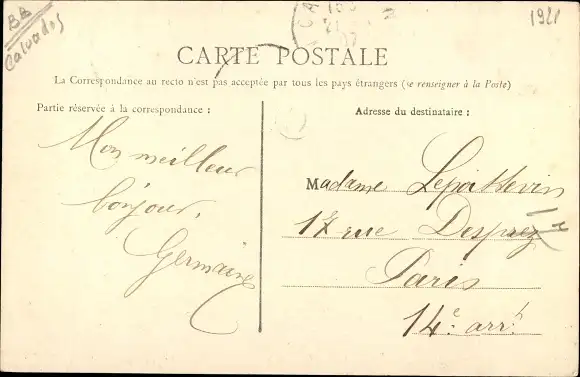 BB
Calvados
1921
CARTE POSTALE
La Correspondance au recto n'est pas acceptée par tous les pays étrangers (se renseigner à la Poste)
Partie réservée à la correspondance :
Mon meilleur
bonjour,
Germaine
Adresse du destinataire :
Madame Lepoittevin
17 rue Desprez
Paris
14e arrt